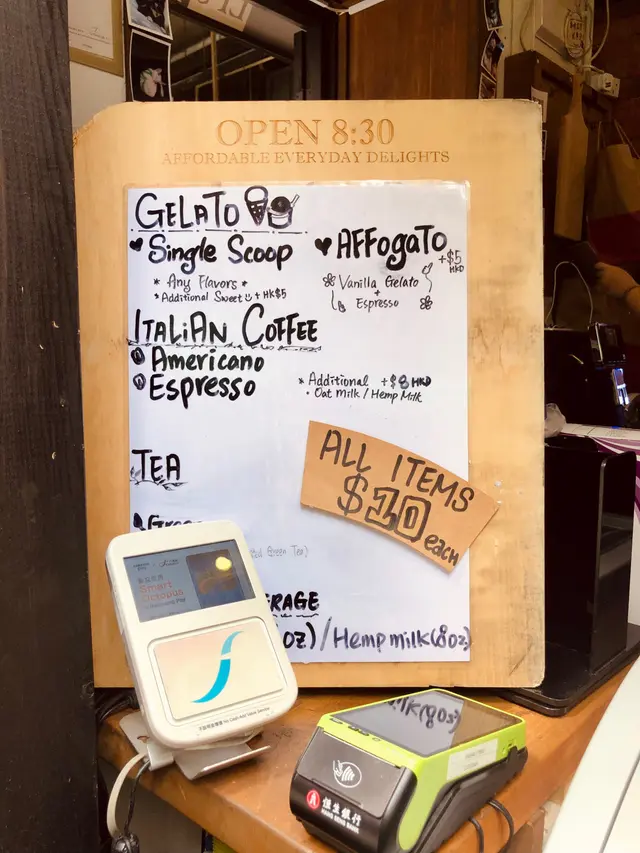 OPEN 8:30
AFFORDABLE EVERYDAY DELIGHTS
GELATO
Single Scoop
* Any Flavors *
* Additional Sweet + HK$5
AFFOGATO
+$5
HKD
Vanilla Gelato
+
Espresso
ITALIAN COFFEE
Americano
Espresso
* Additional +$8 HKD
• Oat Milk / Hemp Milk
TEA
ALL ITEMS
$10
each
Green Tea)
ERAGE
oz) / Hemp milk (8oz)
Smart
Octopus
恒生銀行
HANG SENG BANK